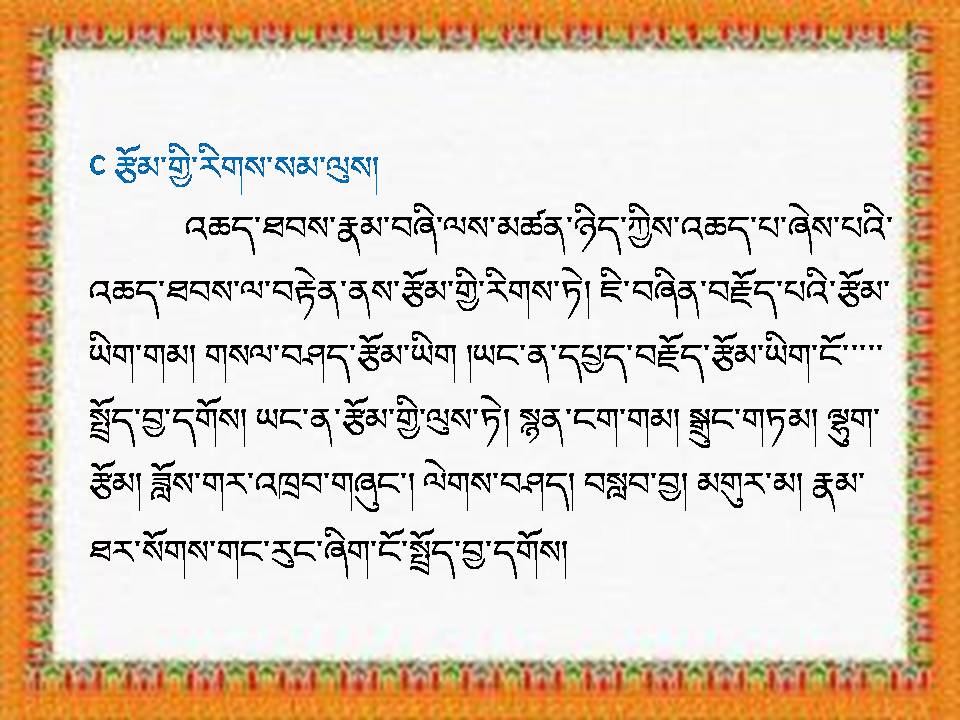 C རྩོམ་གྱི་རིགས་སམ་ལུས།
འཆད་ཐབས་རྣམ་བཞི་ལས་མཚན་ཉིད་ཀྱིས་འཆད་པ་ཞེས་པའི་
འཆད་ཐབས་ལ་བརྟེན་ནས་རྩོམ་གྱི་རིགས་ཏེ། ཇི་བཞིན་བརྗོད་པའི་རྩོམ་
ཡིག་གམ། གསལ་བཤད་རྩོམ་ཡིག །ཡང་ན་དཔྱད་བརྗོད་རྩོམ་ཡིག་ངོ་་་་་
སྤྲོད་བྱ་དགོས། ཡང་ན་རྩོམ་གྱི་ལུས་ཏེ། སྙན་ངག་གམ། སྒྲུང་གཏམ། ལྷུག་
རྩོམ། ཟློས་གར་འཁྲབ་གཞུང་། ལེགས་བཤད། བསླབ་བྱ། མགུར་མ། རྣམ་
ཐར་སོགས་གང་རུང་ཞིག་ངོ་སྤྲོད་བྱ་དགོས།